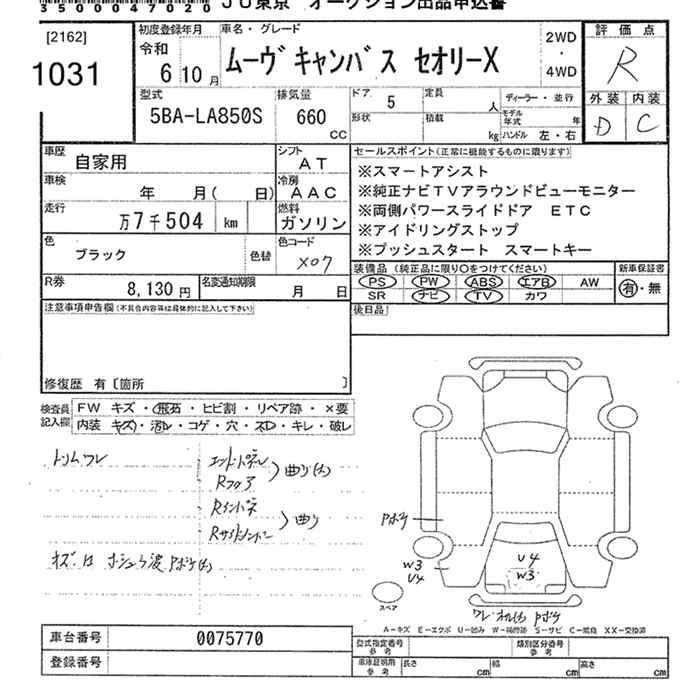 3500047020 JU東京 オークション出品申込書
[2162]
1031
初度登録年月
令和
6年 10月
車名・グレード
ムーヴキャンバス セオリーX
2WD
・
4WD
評価点
R
外装 内装
D C
型式
5BA-LA850S
排気量
660
CC
ドア
5
定員
人
形状
積載
kg
ディーラー・並行
モデル年式
年
ハンドル 左・右
車歴
自家用
シフト
AT
車検
年 月( 日)
冷房
AAC
走行
万7千504 km
燃料
ガソリン
色
ブラック
色替
色コード
X07
R券
8,130円
名変通知期限
月 日
セールスポイント(正常に機能するものに限ります)
※スマートアシスト
※純正ナビTVアラウンドビューモニター
※両側パワースライドドア ETC
※アイドリングストップ
※プッシュスタート スマートキー
装備品 (純正品に限り○をつけてください)
PS PW ABS エアB AW
SR ナビ TV カワ
新車保証書
有・無
後日品
注意事項申告欄(不具合内容等は具体的に記入して下さい)
修復歴 有〔箇所 〕
検査員
記入欄
FW キズ・飛石・ヒビ割・リペア跡・×要
内装 キズ・汚レ・コゲ・穴・ヌロ・キレ・破レ
トリムワレ
エンドパネル
Rフロア
曲り(大)
Rインパネ
Rサイドメンバー
曲り
キズ・凹 ホシュウ波 Pボケ(大)
Pボケ
W3
U4
U4
W3
スペア
A-キズ E-エクボ U-凹み W-補修跡 S-サビ C-腐食 XX-交換済
車台番号
0075770
登録番号
型式指定番号
参考
類別区分番号
参考
車庫証明用
参考
長さ cm
幅 cm
高さ cm